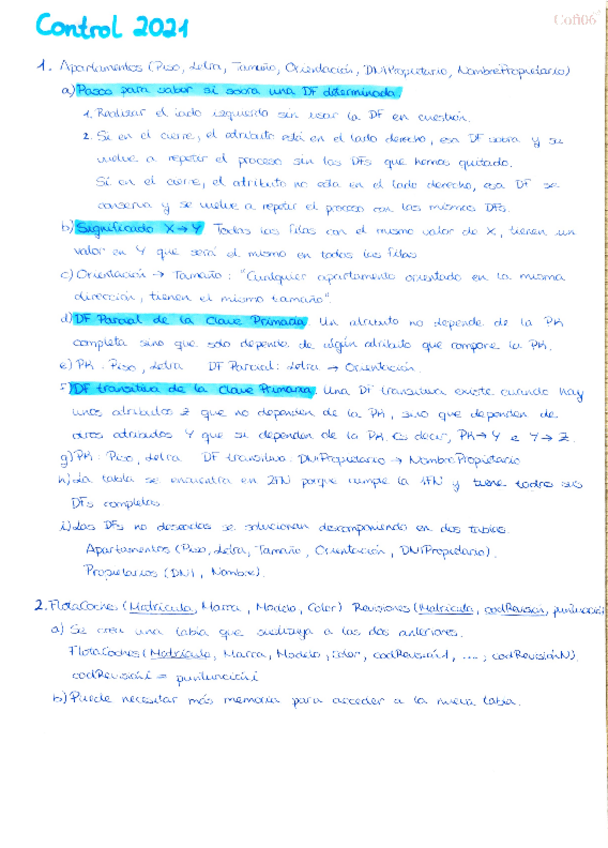 Control 2021
Cofi06
1. Apartamentos (Piso, Letra, Tamaño, Orientación, DNIPropietario, NombrePropietario)
a) Pasos para saber si sobra una DF determinada.
1. Realizar el lado izquierdo sin usar la DF en cuestión.
2. Si en el cierre, el atributo está en el lado derecho, esa DF sobra y se
vuelve a repetir el proceso sin las DFs que hemos quitado.
Si en el cierre, el atributo no está en el lado derecho, esa DF se
conserva y se vuelve a repetir el proceso con las mismas DFs.
b) Significado X→Y Todas las filas con el mismo valor de X, tienen un
valor en Y que será el mismo en todas las filas
c) Orientación → Tamaño : "Cualquier apartamento orientado en la misma
dirección, tienen el mismo tamaño".
d) DF Parcial de la Clave Primaria. Un atributo no depende de la PK
completa sino que solo depende de algún atributo que compone la PK.
e) PK : Piso, Letra DF Parcial: Letra → Orientación.
f) DF transitiva de la Clave Primaria. Una DF transitiva existe cuando hay
unos atributos Z que no dependen de la PK, sino que dependen de
otros atributos Y que si dependen de la PK. Es decir, PK→Y e Y→Z.
g) PK : Piso, Letra DF transitiva: DNIPropietario → NombrePropietario
h) La tabla se encuentra en 2FN porque cumple la 1FN y tiene todas sus
DFs completas.
i) Las DFs no deseadas se solucionan descomponiendo en dos tablas.
Apartamentos (Piso, Letra, Tamaño, Orientación, DNIPropietario).
Propietarios (DNI, Nombre).
2. FlotaCoches (Matrícula, Marca, Modelo, Color) Revisiones (Matrícula, codRevision, puntuación
a) Se crea una tabla que sustituya a las dos anteriores.
FlotaCoches (Matrícula, Marca, Modelo, Color, codRevisión1, ...., codRevisiónN).
codRevisióni = puntuacióni
b) Puede necesitar más memoria para acceder a la nueva tabla.